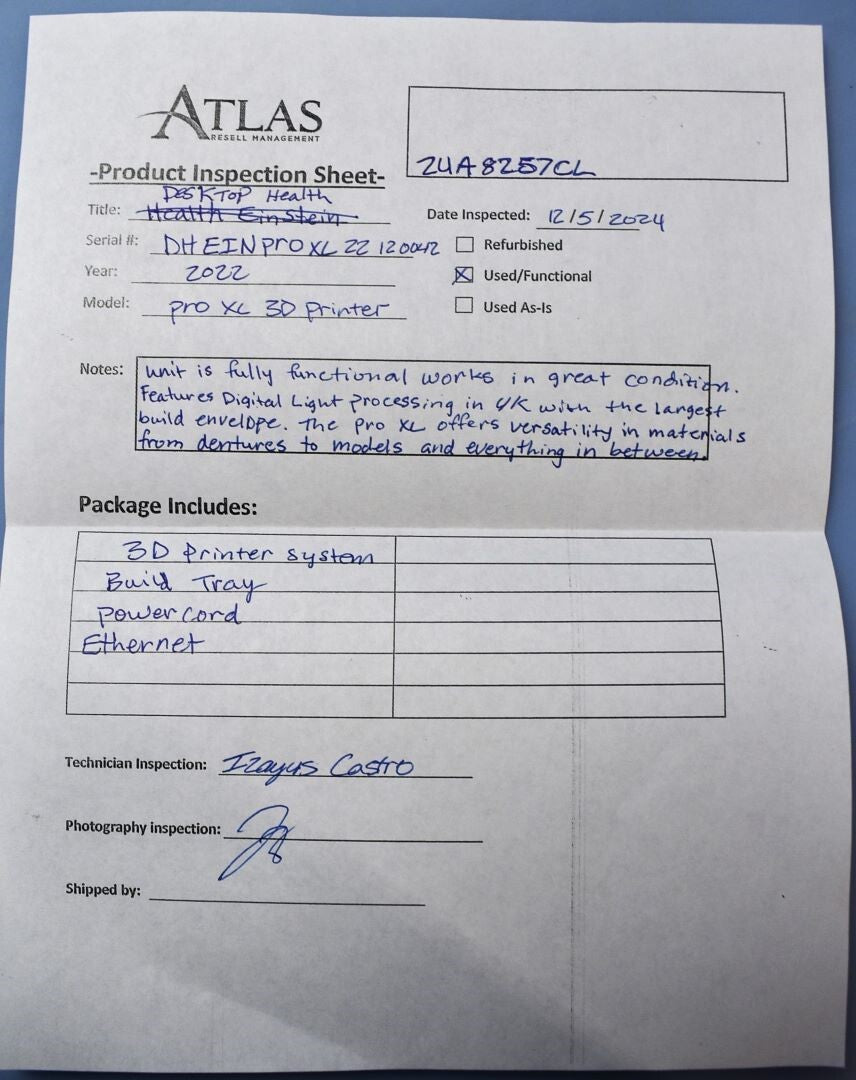 ATLAS
RESELL MANAGEMENT
2UA8257CL
-Product Inspection Sheet-
DESKTOP Health
Title: Health Einstein
Date Inspected: 12/5/2024
Serial #: DHEINPROXL22120042
Refurbished
Year: 2022
Used/Functional
Model: pro XL 3D printer
Used As-Is
Notes: unit is fully functional works in great condition.
Features Digital Light processing in 4K with the largest
build envelope. The pro XL offers versatility in materials
from dentures to models and everything in between.
Package Includes:
3D printer system
Build Tray
power cord
Ethernet
Technician Inspection: Izayus Castro
Photography inspection:
Shipped by: